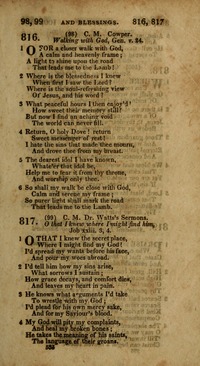 98, 99 AND BLESSINGS. 816, 817
816. (98) C. M. Cowper.
Walking with God, Gen. v. 24.
1 O FOR a closer walk with God,
A calm and heavenly frame;
A light to shine upon the road
That leads me to the Lamb!
2 Where is the blessedness I knew
When first I saw the Lord?
Where is the soul-refreshing view
Of Jesus, and his word?
3 What peaceful hours I then enjoy'd!
How sweet their memory still!
But now I find an aching void
The world can never fill.
4 Return, O holy Dove! return
Sweet messenger of rest!
I hate the sins that made thee mourn,
And drove thee from my breast.
5 The dearest idol I have known,
Whate'er that idol be,
Help me to tear it from thy throne,
And worship only thee.
6 So shall my walk be close with God,
Calm and serene my frame;
So purer light shall mark the road
That leads me to the Lamb.
817. (99) C. M. Dr. Watts's Sermons.
O that I knew where I might find him,
Job xxiii. 3, 4.
1 O THAT I knew the secret place,
Where I might find my God!
I'd spread my wants before his face,
And pour my woes abroad.
2 I'd tell him how my sins arise,
What sorrows I sustain;
How grace decays, and comfort dies,
And leaves my heart in pain.
3 He knows what arguments I'd take
To wrestle with my God;
I'd plead for his own mercy sake,
And for my Saviour's blood.
4 My God will pity my complaints,
And heal my broken bones;
He takes the meaning of his saints,
The language of their groans.